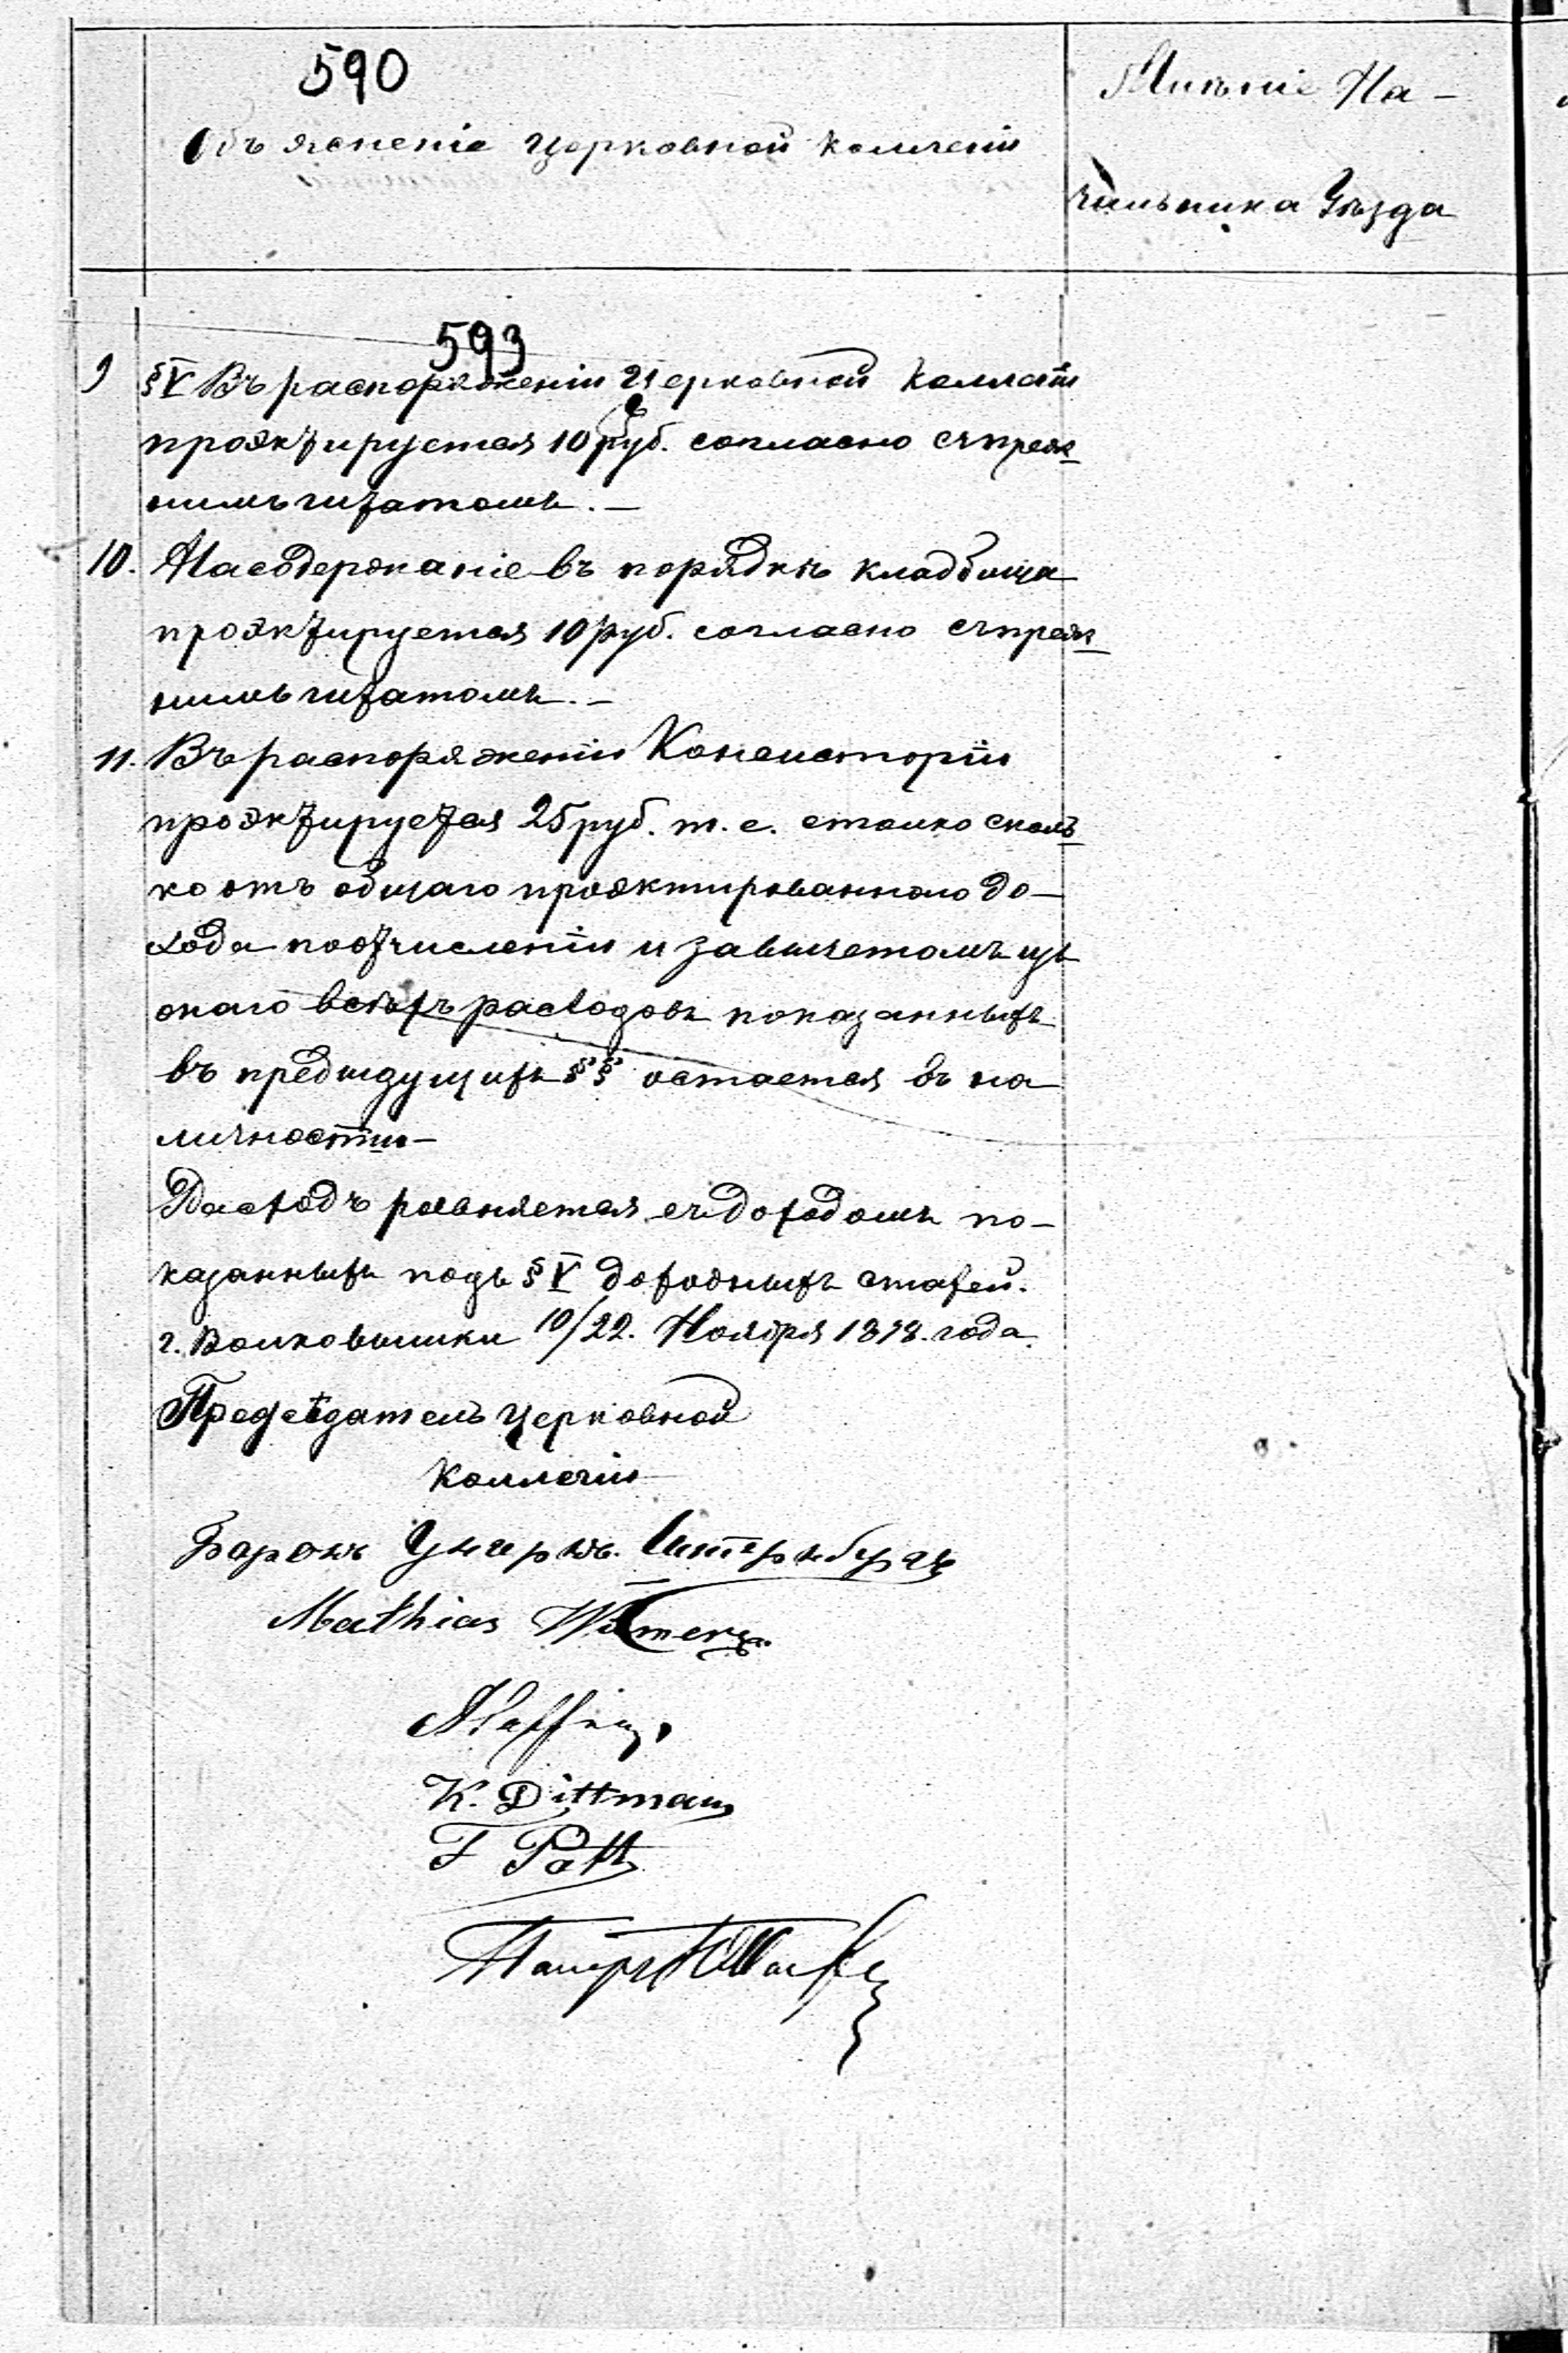 590
Объясненіе Церковной Коллегіи
Мнѣніе На-
чальника Уѣзда
593
9 §V Въ распоряженіи Церковной Коллегіи
проэктируется 10 руб. согласно съ преж-
нимъ штатомъ.-
10. На содержаніе въ порядкѣ кладбища
проэктируется 10 руб. согласно съ преж-
нимъ штатомъ.-
11. Въ распоряженіи Консисторіи
проэктируется 25 руб. т.е. столко сколь-
ко отъ общаго проэктированнаго до-
хода по отчисленіи и за вычетомъ изъ
онаго всѣхъ расходовъ показанныхъ
въ предыдущихъ §§ остается въ на
личности-
Расходъ равняется съ доходомъ по-
казанныхъ подъ §V доходныхъ статей.
г. Волковышки 10/22. Ноября 1878. года.
Предсѣдатель Церковной
Коллегіи
Баронъ Унгернъ. Штернбергъ
Mathias
K. Dittmann
F
Пасторъ